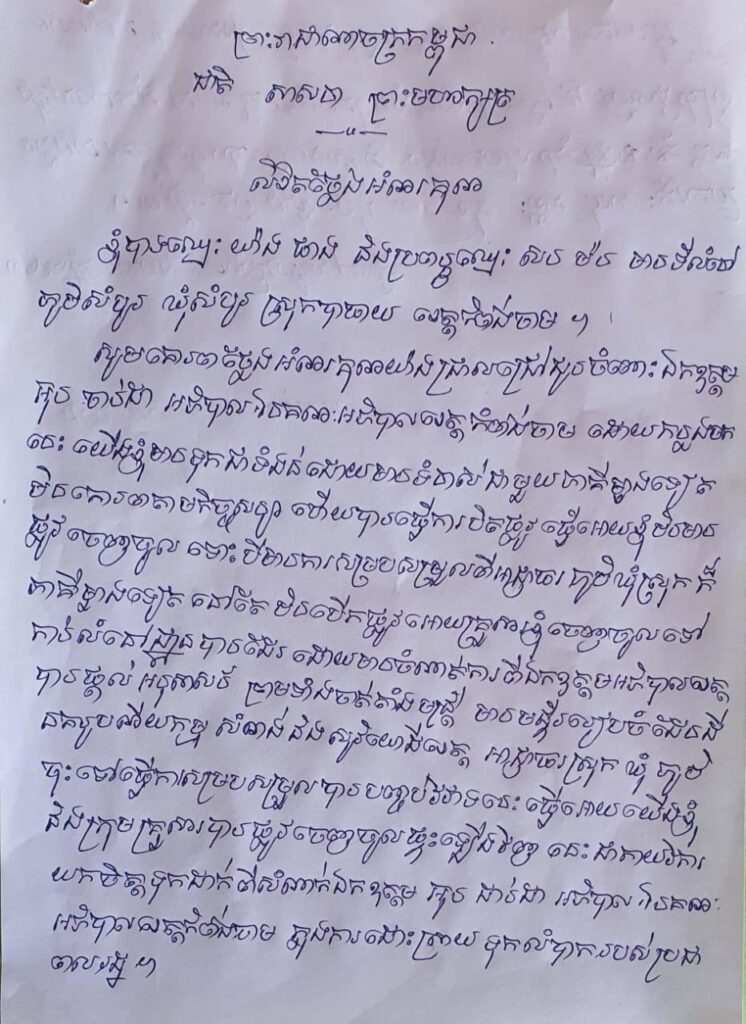 ព្រះរាជាណាចក្រកម្ពុជា
ជាតិ សាសនា ព្រះមហាក្សត្រ
លិខិតថ្លែងអំណរគុណ
ខ្ញុំបាទឈ្មោះ យ៉ង ផាង និងប្រពន្ធឈ្មោះ សេប ម៉ប មានទីលំនៅ
ភូមិសំបូរ ឃុំសំបូរ ស្រុកបាធាយ ខេត្តកំពង់ចាម ។
សូមគោរពថ្លែងអំណរគុណយ៉ាងជ្រាលជ្រៅជូនចំពោះឯកឧត្តម
អ៊ុន ចាន់ដា អភិបាល នៃគណៈអភិបាលខេត្តកំពង់ចាម ដោយកន្លងមក
នេះ យើងខ្ញុំមានទុកជាទំងន់ដោយមានទំនាស់ជាមួយភាគីម្ខាងទៀត
មិនគោរពតាមកិច្ចសន្យា ហើយបានធ្វើការបិតផ្លូវ ធ្វើអោយខ្ញុំមិនមាន
ផ្លូវចេញចូល ទោះបីមានការសម្របសម្រួលពីអាជ្ញាធរ ភូមិឃុំស្រុក ក៏
ភាគីម្ខាងទៀត នៅតែមិនបើកផ្លូវអោយគ្រួសារខ្ញុំចេញចូលទៅ
កាន់លំនៅដ្ឋានបានដែរ ដោយមានចំណាត់ការពីឯកឧត្តមអភិបាលខេត្ត
បានផ្តល់ អនុសាសន៍ ព្រមទាំងចាត់តាំងមន្ត្រី មានមន្ទីររៀបចំដែនដី
នគរូបណីយកម្ម សំណង់ និងសុរិយោដីខេត្ត អាជ្ញាធរស្រុក ឃុំ ភូមិ
ចុះទៅធ្វើការសម្របសម្រួលបានបញ្ចប់វិវាទនេះ ធ្វើអោយយើងខ្ញុំ
និងក្រុមគ្រួសារបានផ្លូវចេញចូលផ្ទះឡើងវិញ នេះជាកាយវិការ
យកចិត្តទុកដាក់ពីសំណាក់ឯកឧត្តម អ៊ុន ចាន់ដា អភិបាល នៃគណៈ
អភិបាលខេត្តកំពង់ចាម ក្នុងការដោះស្រាយ ទុកលំបាករបស់ប្រជា
ពលរដ្ឋ ។